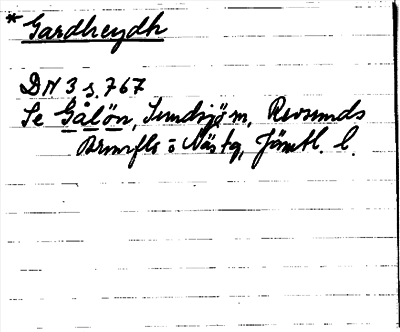 * Gardheydh
DN 3 s. 767
Se Gålön, Sundsjö m, Revsunds
Brunflo o Näs tg, Jämtl. l.